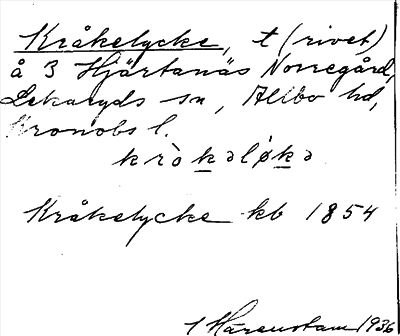 Kråkelycke, t (rivet)
å 3 Hjärtanäs Norregård,
Lekaryds sn, Allbo hd,
Kronobs l.
kròkəløkə
Kråkelycke kb 1854
Härenstam 1936